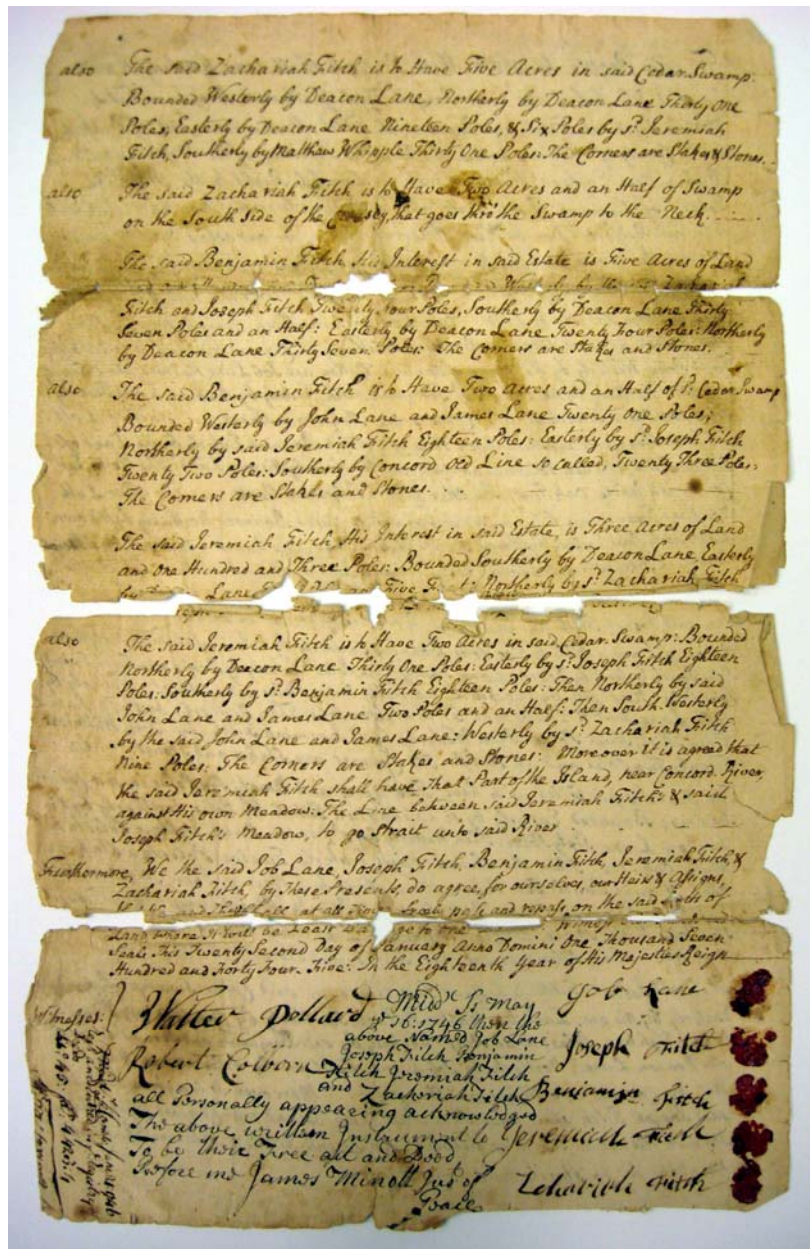 also The said Zachariah Fitch is to Have Five Acres in said Cedar Swamp.
Bounded Westerly by Deacon Lane, Northerly by Deacon Lane Thirty One
Poles, Easterly by Deacon Lane Nineteen Poles, & Six Poles by sd. Jeremiah
Fitch, Southerly by Matthew Whipple Thirty One Poles: The Corners are Stakes & Stones.
also The said Zachariah Fitch is to Have Two Acres and an Half of Swamp
on the South side of the that goes thro' the Swamp to the Neck.
The said Benjamin Fitch, His Interest in said Estate is Five Acres of Land
Westerly by the
Fitch and Joseph Fitch Twenty Four Poles, Southerly by Deacon Lane Thirty
Seven Poles and an Half: Easterly by Deacon Lane Twenty Four Poles: Northerly
by Deacon Lane Thirty Seven Poles: The Corners are Stakes and Stones.
also The said Benjamin Fitch is to Have Two Acres and an Half of sd. Cedar Swamp
Bounded Westerly by John Lane and James Lane Twenty One Poles;
Northerly by said Jeremiah Fitch Eighteen Poles: Easterly by sd. Joseph Fitch
Twenty Two Poles: Southerly by Concord Old Line so called, Twenty Three Poles:
The Corners are Stakes and Stones.
The said Jeremiah Fitch, His Interest in said Estate, is Three Acres of Land
and One Hundred and Three Poles: Bounded Southerly by Deacon Lane, Easterly
Lane Five Northerly by sd. Zachariah Fitch
also The said Jeremiah Fitch is to Have Two Acres in said Cedar Swamp: Bounded
Northerly by Deacon Lane Thirty One Poles: Easterly by sd. Joseph Fitch Eighteen
Poles: Southerly by sd. Benjamin Fitch Eighteen Poles: Then Northerly by said
John Lane and James Lane Two Poles and an Half: Then South Westerly
by the said John Lane and James Lane: Westerly by sd. Zachariah Fitch
Nine Poles. The Corners are Stakes and Stones: Moreover it is agreed that
the said Jeremiah Fitch shall have That Part of the Island, near Concord River,
against His own Meadow: The Line between said Jeremiah Fitch's & said
Joseph Fitch's Meadow, to go strait unto said River
Furthermore, We the said Job Lane, Joseph Fitch, Benjamin Fitch, Jeremiah Fitch, &
Zachariah Fitch, by These Presents, do agree, for ourselves, our Heirs & Assigns,
all at all pass and repass, on the said of
Land where it will be Least to one
Seals This Twenty Second Day of January Anno Domini One Thousand Seven
Hundred and Forty Four Five: In the Eighteenth Year of His Majesties Reign
Witnesses:
Walter Pollard
Robert Colborn
Midd. Ss May
ye 16: 1746 then the
above Named Job Lane
Joseph Fitch Benjamin
Fitch Jeremiah Fitch
and Zachariah Fitch
all Personally appearing acknowledged
The above written Instrument to
To be their Free act and Deed
Before me James Minott Jus of
Peace
Job Lane
Joseph Fitch
Benjamin Fitch
Jeremiah Fitch
Zachariah Fitch